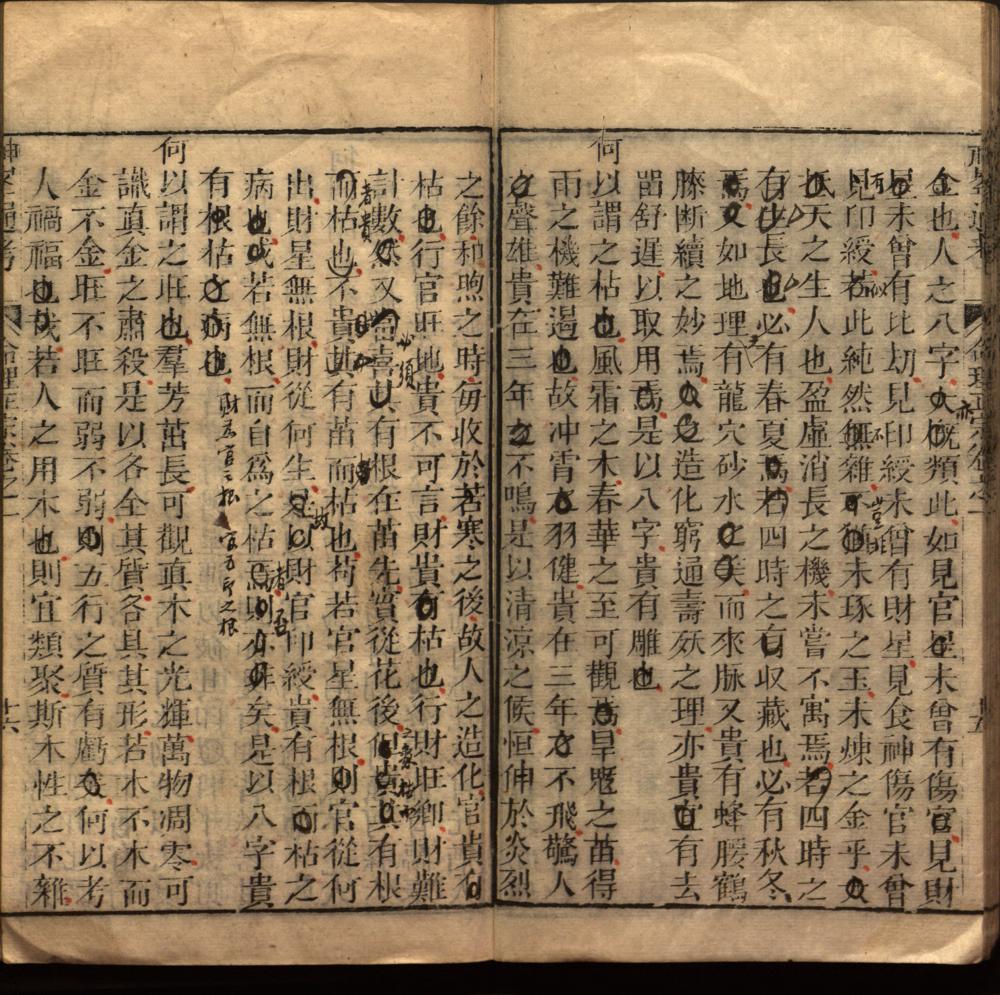 金也人之八字大概類此如見官星未曾有傷官見財
星未曾有比刼見印綬未曾有財星見食神傷官未曾
見印綬若此純然無雜猶未琢之玉未煉之金乎
抵天之生人也盈虛消長之機未嘗不寓焉若四時之
有生長也必有春夏焉若四時之有收藏也必有秋冬
焉又如地理有龍穴砂水之美而來脉又貴有蜂腰鶴
膝斷續之妙焉造化窮通壽殀之理亦貴宜有去
畱舒遲以取用焉是以八字貴有雕也
何以謂之枯也風霜之木春華之至可觀焉旱魃之苗得
雨之機難遏也故冲霄之羽健貴在三年之不飛驚人
之聲雄貴在三年之不鳴是以清凉之候恒伸於炎烈
之餘和煦之時每收於苦寒之後故人之造化官貴有
枯也行官旺地貴不可言財貴有枯也行財旺鄉財難
計數然又當喜其有根在苗先實從花後但貴其有根
而枯也不貴其有苗而枯也苟若官星無根則官從何
出財星無根財從何生是以財官印綬貴有根而枯之
病也或若無根而自爲之枯焉則亦非矣是以八字貴
有根枯之病也
財爲官之根 官爲印之根
何以謂之旺也羣芳茁長可觀眞木之光輝萬物凋零可
識眞金之肅殺是以各全其質各具其形若木不木而
金不金旺不旺而弱不弱則五行之質有虧矣何以考
人禍福也哉若人之用木也則宜類聚斯木性之不雜